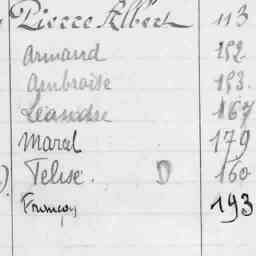 Pierre Albert 113
Armand 152
Ambroise 153.
Léandre 167
Marcel 179
Felise. D 160
François 193